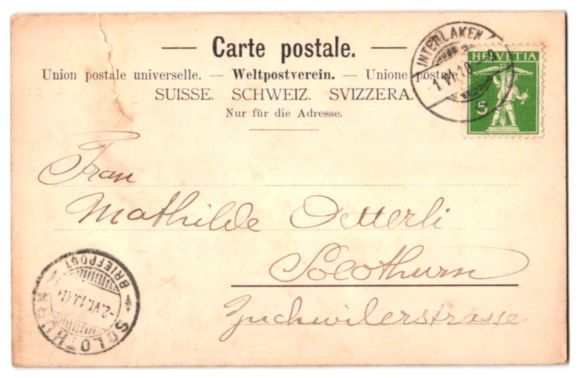 — Carte postale. —
Union postale universelle. — Weltpostverein. — Unione postale
SUISSE. SCHWEIZ. SVIZZERA.
Nur für die Adresse.
INTERLAKEN
HELVETIA
5
Frau
Mathilde Oetterli
Solothurn
Zuchwilerstrasse
SOLOTHURN
BRIEFPOST